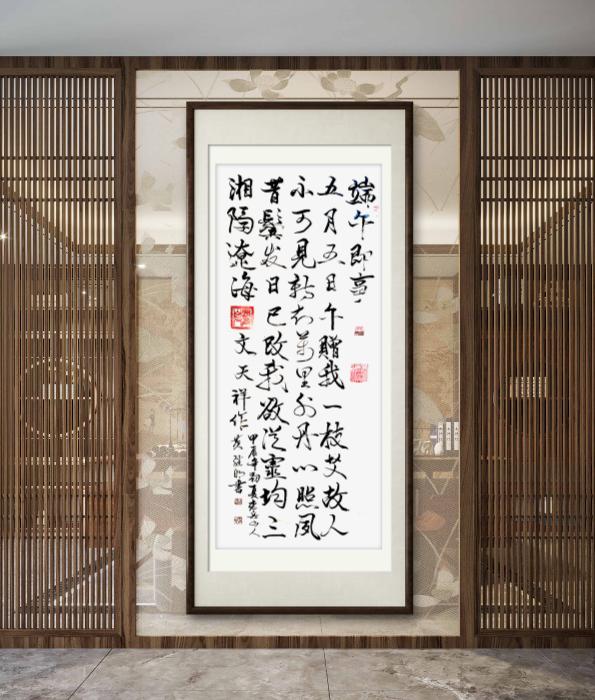 端午即事
五月五日午贈我一枝艾故人
不可見新知萬里外丹心照夙
昔鬢发日已改我欲從靈均三
湘隔遼海
文天祥作黄书
甲辰年初夏山人